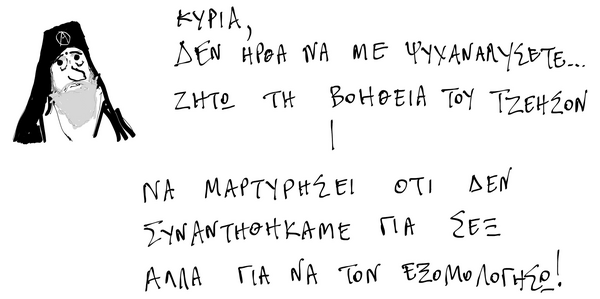 ΚΥΡΙΑ,
ΔΕΝ ΗΡΘΑ ΝΑ ΜΕ ΨΥΧΑΝΑΛΥΣΕΤΕ...
ΖΗΤΩ ΤΗ ΒΟΗΘΕΙΑ ΤΟΥ ΤΖΕΗΣΟΝ
ΝΑ ΜΑΡΤΥΡΗΣΕΙ ΟΤΙ ΔΕΝ
ΣΥΝΑΝΤΗΘΗΚΑΜΕ ΓΙΑ ΣΕΞ
ΑΛΛΑ ΓΙΑ ΝΑ ΤΟΝ ΕΞΟΜΟΛΟΓΗΣΩ!